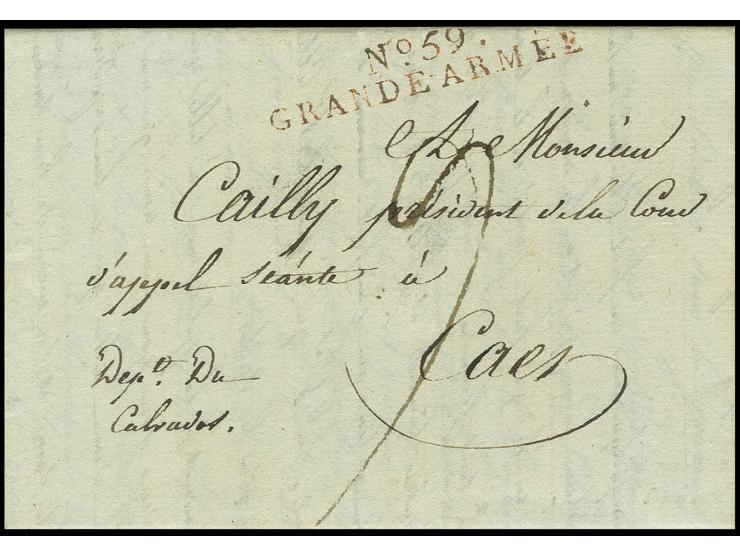 No. 59.
GRANDE-ARMÉE
A Monsieur
Cailly président de la Cour
d'appel séante à
Caen
Dept. Du
Calvados.
9